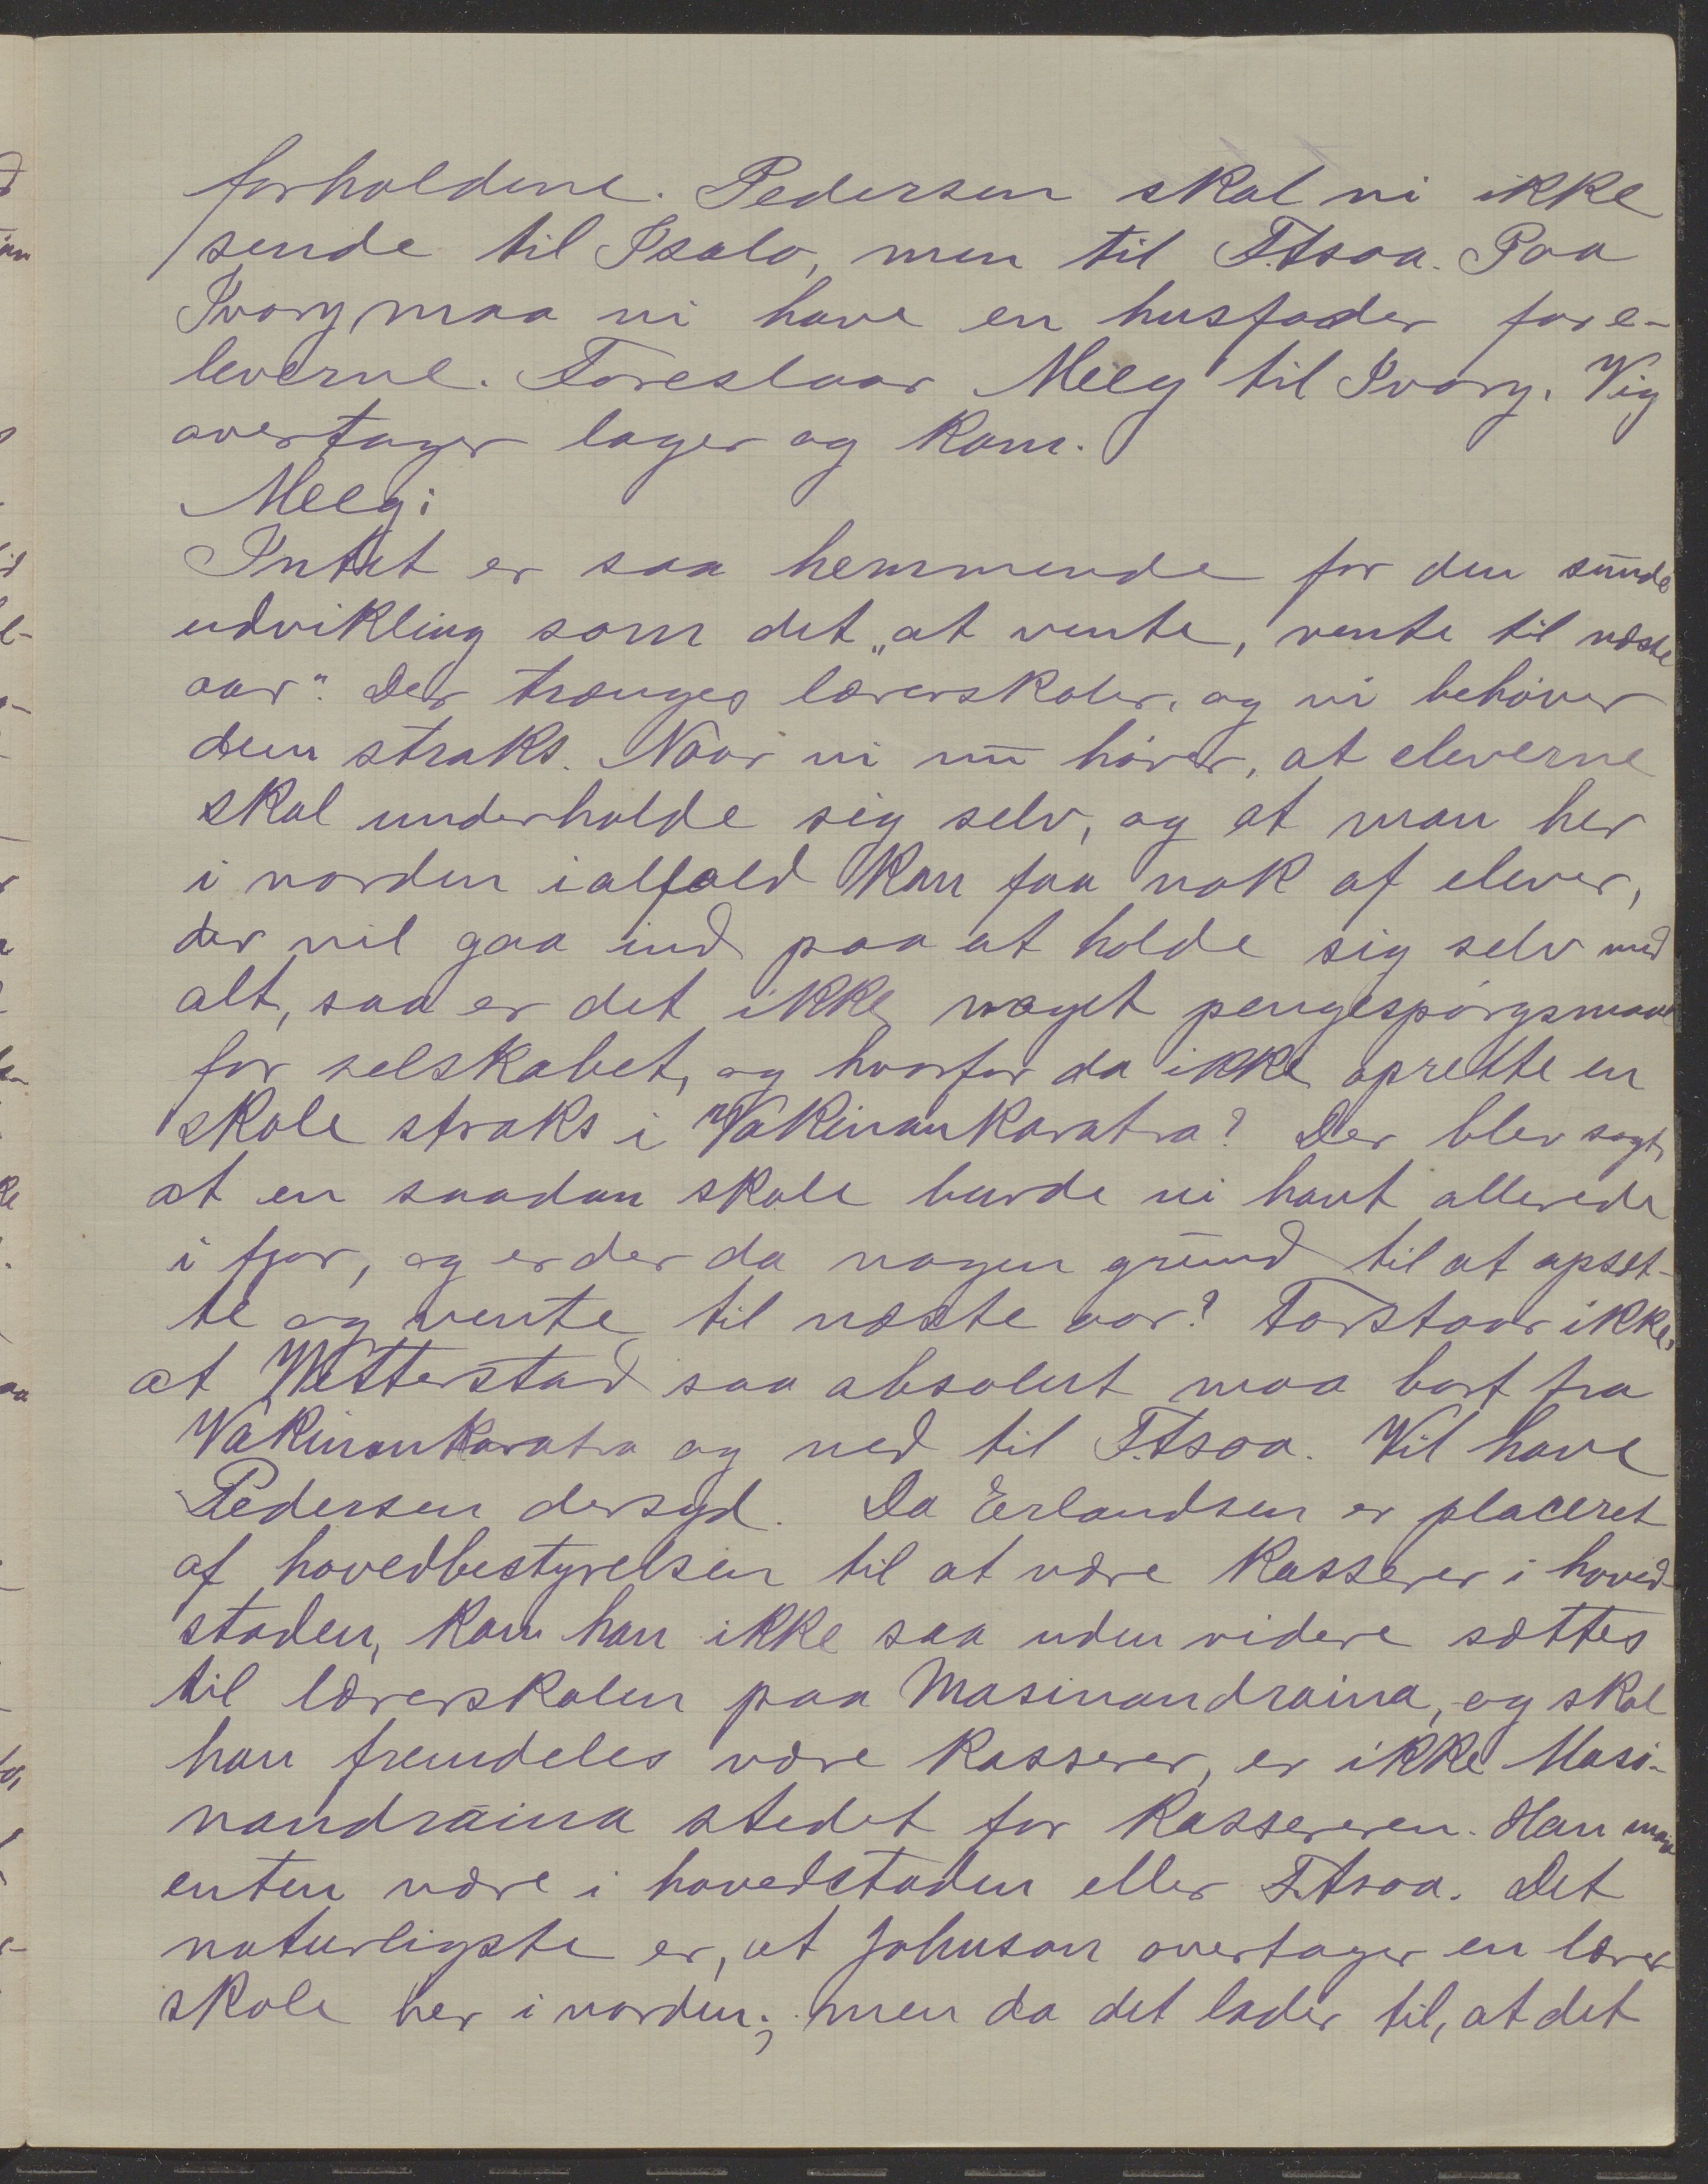 forholdene. Pedersen skal vi ikke
sende til Isalo, men til F.tsoa. Paa
Ivory maa vi have en husfader for e-
leverne. Foreslaar Meeg til Ivory. Vig
overtager lager og kom.
Meeg:
Intet er saa hemmende for den sunde
udvikling som det „at vente, vente til næste
aar". Der trænges lærerskoler, og vi behøver
dem straks. Naar vi nu hører, at eleverne
skal underholde sig selv, og at man her
i norden ialfald kan faa nok af elever,
der vil gaa ind paa at holde sig selv med
alt, saa er det ikke noget pengespørgsmaal
for selskabet, og hvorfor da ikke oprette en
skole straks i Vakinankaratra? Der blev sagt,
at en saadan skole burde vi havt allerede
i fjor, og er der da nogen grund til at opsæt-
te og vente til næste aar? Forstaar ikke,
at Wetterstad saa absolut maa bort fra
Vakinankaratra og ned til F.tsoa. Vil have
Pedersen dersyd. Da Erlandsen er placeret
af hovedbestyrelsen til at være kasserer i hoved-
staden, kan han ikke saa uden videre sættes
til lærerskolen paa Masinandraina, og skal
han fremdeles være kasserer, er ikke Masi-
nandraina stedet for kassereren. Han maa
enten være i hovedstaden eller F.tsoa. Det
naturligste er, at Johnson overtager en lærer-
skole her i norden; men da det lader til, at det